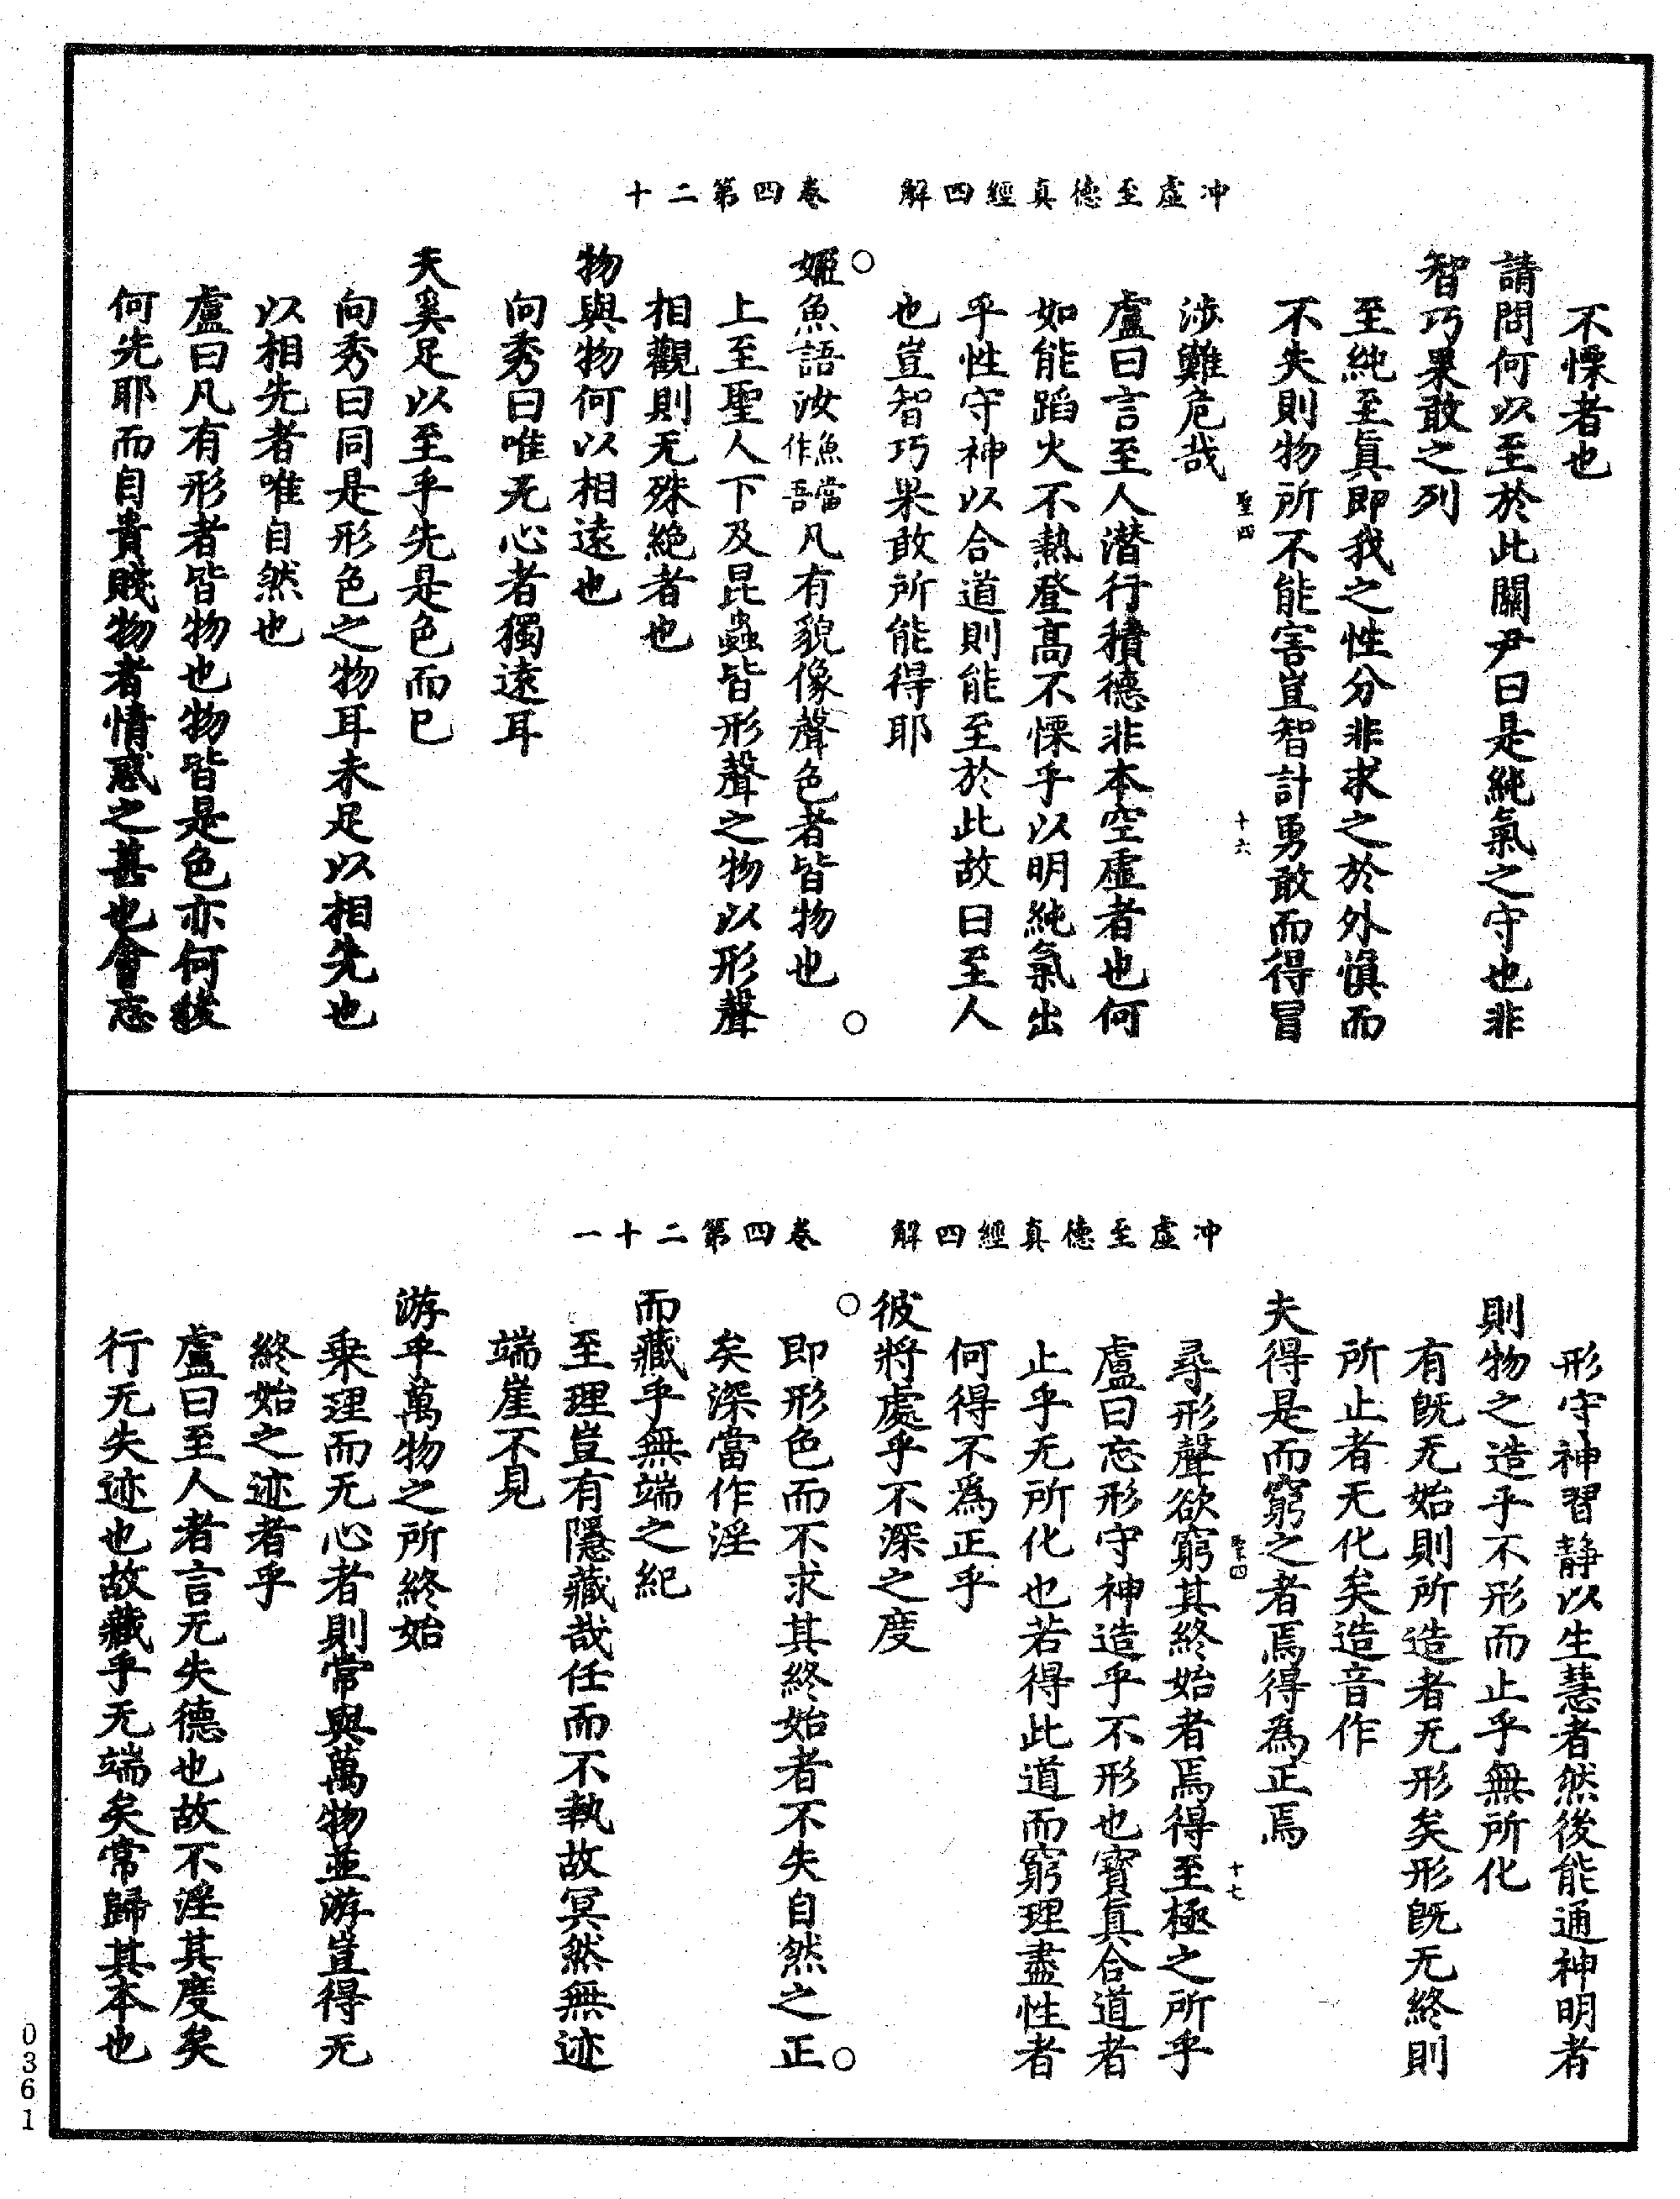 冲虛至德真經四解　卷四第二十
不慄者也
請問何以至於此關尹曰是純氣之守也非
智巧果敢之列
至純至真即我之性分非求之於外慎而
不失則物所不能害豈智計勇敢而得冒
聖四　十六
涉難危哉
盧曰言至人潜行積德非本空虛者也何
如能蹈火不熱登高不慄乎以明純氣出
乎性守神以合道則能至於此故曰至人
也豈智巧果敢所能得耶
姬魚語汝魚當作吾凡有貌像聲色者皆物也
上至聖人下及昆蟲皆形聲之物以形聲
相觀則无殊絶者也
物與物何以相遠也
向秀曰唯无心者獨遠耳
夫奚足以至乎先是色而已
向秀曰同是形色之物耳未足以相先也
以相先者唯自然也
盧曰凡有形者皆物也物皆是色亦何後
何先耶而自貴賤物者情惑之甚也會忘
冲虛至德真經四解　卷四第二十一
形守神習静以生慧者然後能通神明者
則物之造乎不形而止乎無所化
有既无始則所造者无形矣形既无終則
所止者无化矣造音作
夫得是而窮之者焉得為正焉
聖四　十七
尋形聲欲窮其終始者焉得至極之所乎
盧曰忘形守神造乎不形也寶真合道者
止乎无所化也若得此道而窮理盡性者
何得不爲正乎
彼將處乎不深之度
即形色而不求其終始者不失自然之正
矣深當作淫
而藏乎無端之紀
至理豈有隱藏哉任而不執故冥然無迹
端崖不見
游乎萬物之所終始
乗理而无心者則常與萬物並游豈得无
終始之迹者乎
盧曰至人者言无失德也故不淫其度矣
行无失迹也故藏乎无端矣常歸其本也
0361